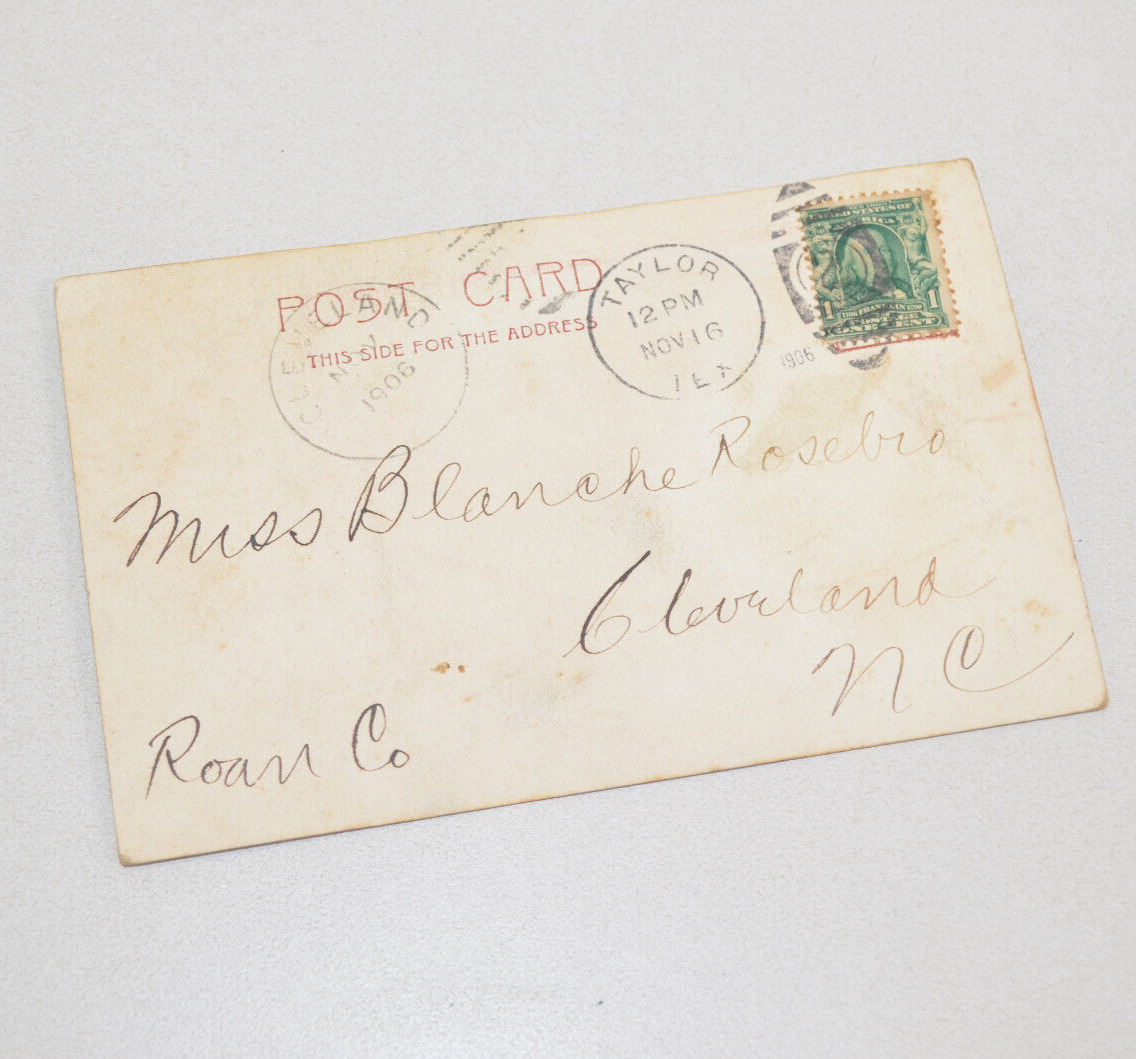 POST CARD
THIS SIDE FOR THE ADDRESS
CLEVELAND
NOV
1906
TAYLOR
12 PM
NOV 16
TEX
1906
UNITED STATES OF
AMERICA
1 FRANKLIN 1
POSTAGE
ONE CENT
Miss Blanche Rosebro
Cleveland
N C
Roan Co